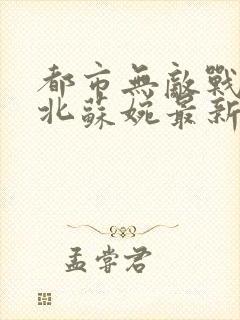 都市無敵戰
北蘇婉最新
孟嘗君